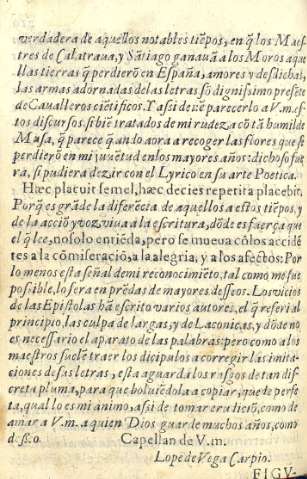 verdadera de aquellos notables tiẽpos, en q̃ los Maes
tres de Calatraua, y Sãtiago ganauã a los Moros aque
llas tierras q̃ perdierõ en España, amores y desdichas,
las armas adornadas de las letras sõ dignissimo presẽte
de Caualleros ciẽtificos. Y assi deuẽ parecerlo a V.m. es-
tos discursos si biẽ tratados de mi rudeza cõ tã humilde
Musa, q̃ parece q̃ ando aora a recoger las flores que se
perdierõ en mi juuẽtud en los mayores años: dichoso fue
ra, si pudiera dezir con el Lyrico en su arte Poetica.
Hæc placuit semel, hæc decies repetita placebit.
Porq̃ es grãde la diferẽcia de aquellos a estos tiẽpos, y
de la acciõ y voz viua a la escritura, dõde es fuerça que
el q̃ lee, no solo entiẽda, pero se mueua cõ los accidẽ
tes a la cõmiseraciõ, a la alegria, y a los afectos: Por
lo menos esta señal de mi reconocimiẽto, tal como me fue
possible, lo sera en prẽdas de mayores desseos. Los vicios
de las Epistolas hã escrito varios autores, el q̃ referi al
principio, las culpa de largas, y de Laconicas, y dõde no
es necessario el aparato de las palabras: pero como a los
maestros suelẽ traer los dicipulos a corregir las imita
ciones de sus letras, esta aguarda los rasgos de tan dis
creta pluma, para que boluiẽdola a copiar, quede perfe
ta, qual lo es mi animo, assi de tomar esta licẽcia, como de
amar a V.m. a quien Dios guarde muchos años, como
desseo. Capellan de V.m.
Lope de Vega Carpio.
FIGV-